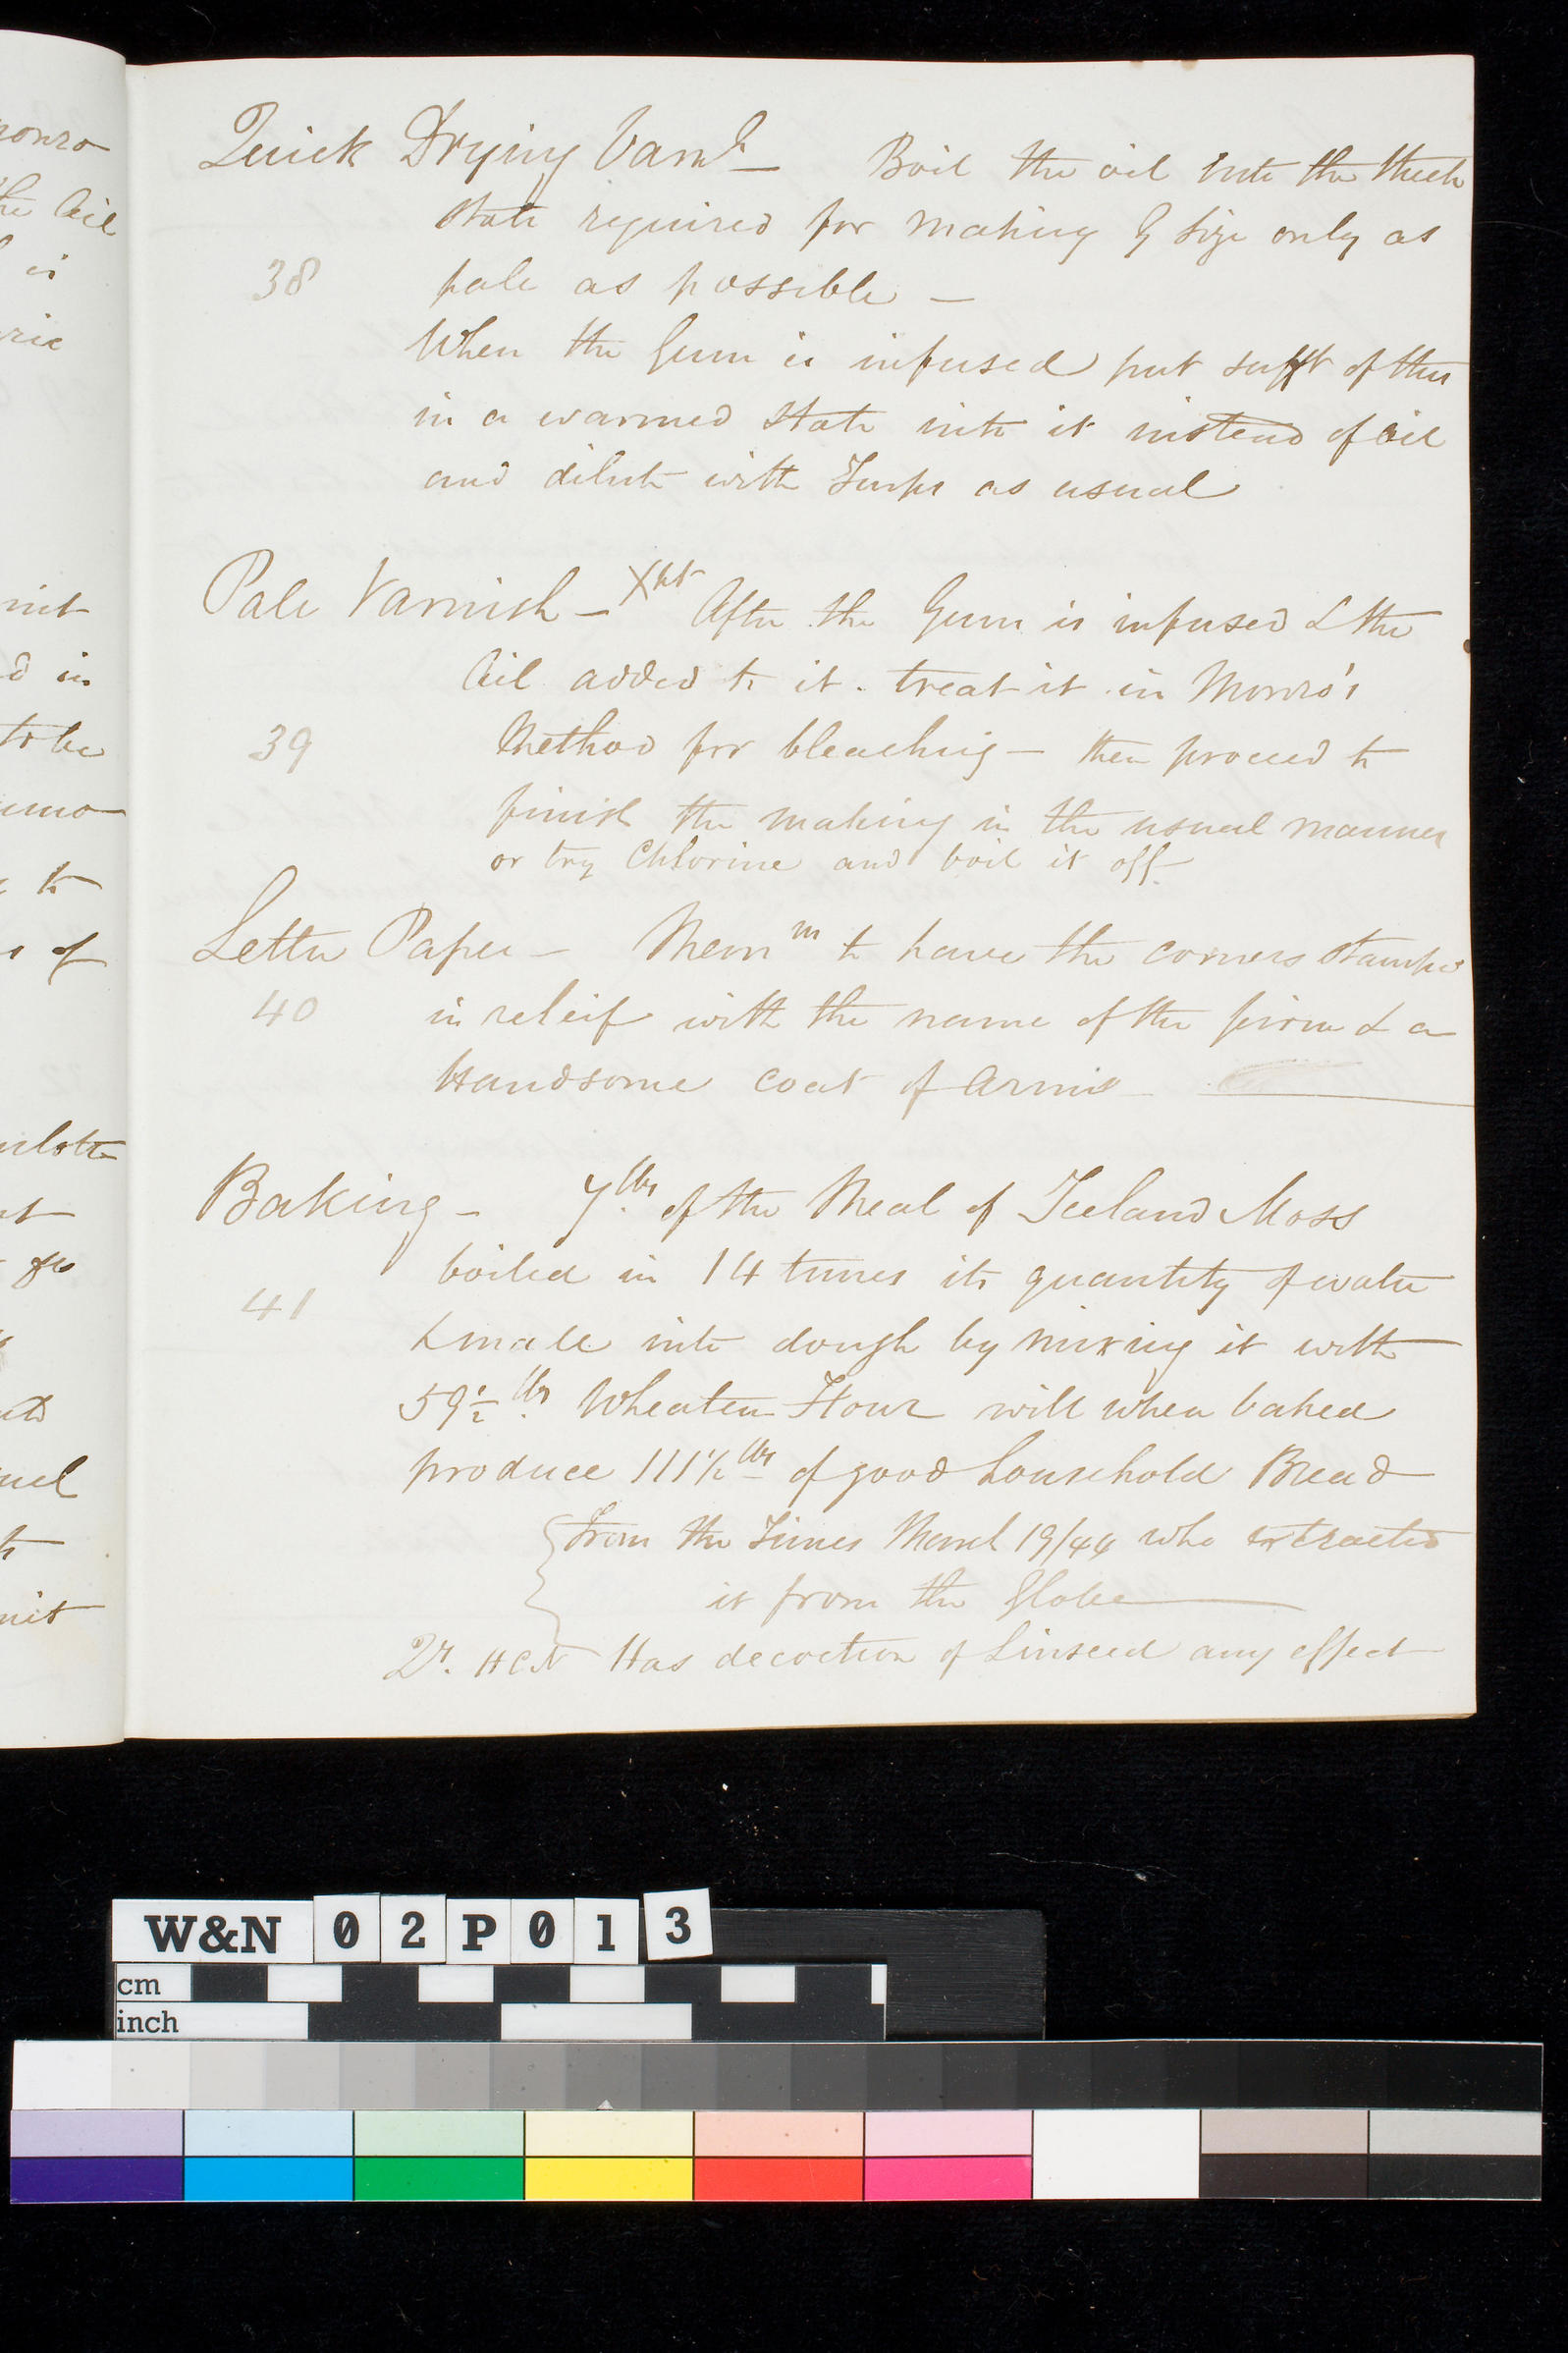 Quick Drying Varnh — Boil the oil into the thick
state required for making G Size only as
38 pale as possible —
When the Gum is infused put sufft of this
in a warmed state into it instead of oil
and dilute with Turps as usual
Pale Varnish — Xpt After the Gum is infused & the
Oil added to it. treat it in Monro's
39 Method for bleaching — then proceed to
finish the making in the usual manner
or try Chlorine and boil it off
Letter Paper — Memm to have the corners stamped
40 in releif with the name of the firm & a
Handsome coat of Arms
Baking — 7 lbs of the Meal of Iceland Moss
boiled in 14 times its quantity of water
41 & made into dough by mixing it with
59 1/2 lbs Wheaten Flour will when baked
produce 111 1/2 lbs of good household Bread
From the Times March 19/44 who extracted
it from the Globe
Qy. HCN Has decoction of Linseed any effect
W&N 02P013
cm
inch